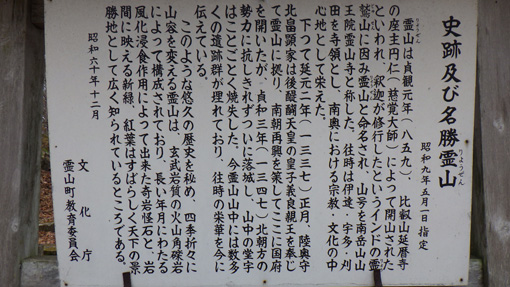 史跡及び名勝霊山
りょうぜん
昭和九年五月一日指定
霊山は貞観元年(八五九)、比叡山延暦寺
の座主円仁(慈覚大師)によって開山された
といわれ、釈迦が修行したというインドの霊
鷲山に因み霊山と命名され、山号を南岳山山
王院霊山寺と称した。往時は伊達・宇多・刈
田を寺領とし、南奥における宗教・文化の中
心地として栄えた。
下って延元二年(一三三七)正月、陸奥守
北畠顕家は後醍醐天皇の皇子義良親王を奉じ
て霊山に拠り、南朝再興を策してここに国府
を開いたが、貞和三年(一三四七)北朝方の
勢力に抗しきれずついに落城し、山中の堂宇
はことごとく焼失した。今霊山山中には数多
くの遺跡群が埋れており、往時の栄華を今に
伝えている。
このような悠久の歴史を秘め、四季折々に
山容を変える霊山は、玄武岩質の火山角礫岩
によって構成されており、長い年月にわたる
風化浸食作用によって出来た奇岩怪石と、岩
間に映える新緑、紅葉はすばらしく天下の景
勝地として広く知られているところである。
昭和六十年十二月
文化庁
霊山町教育委員会